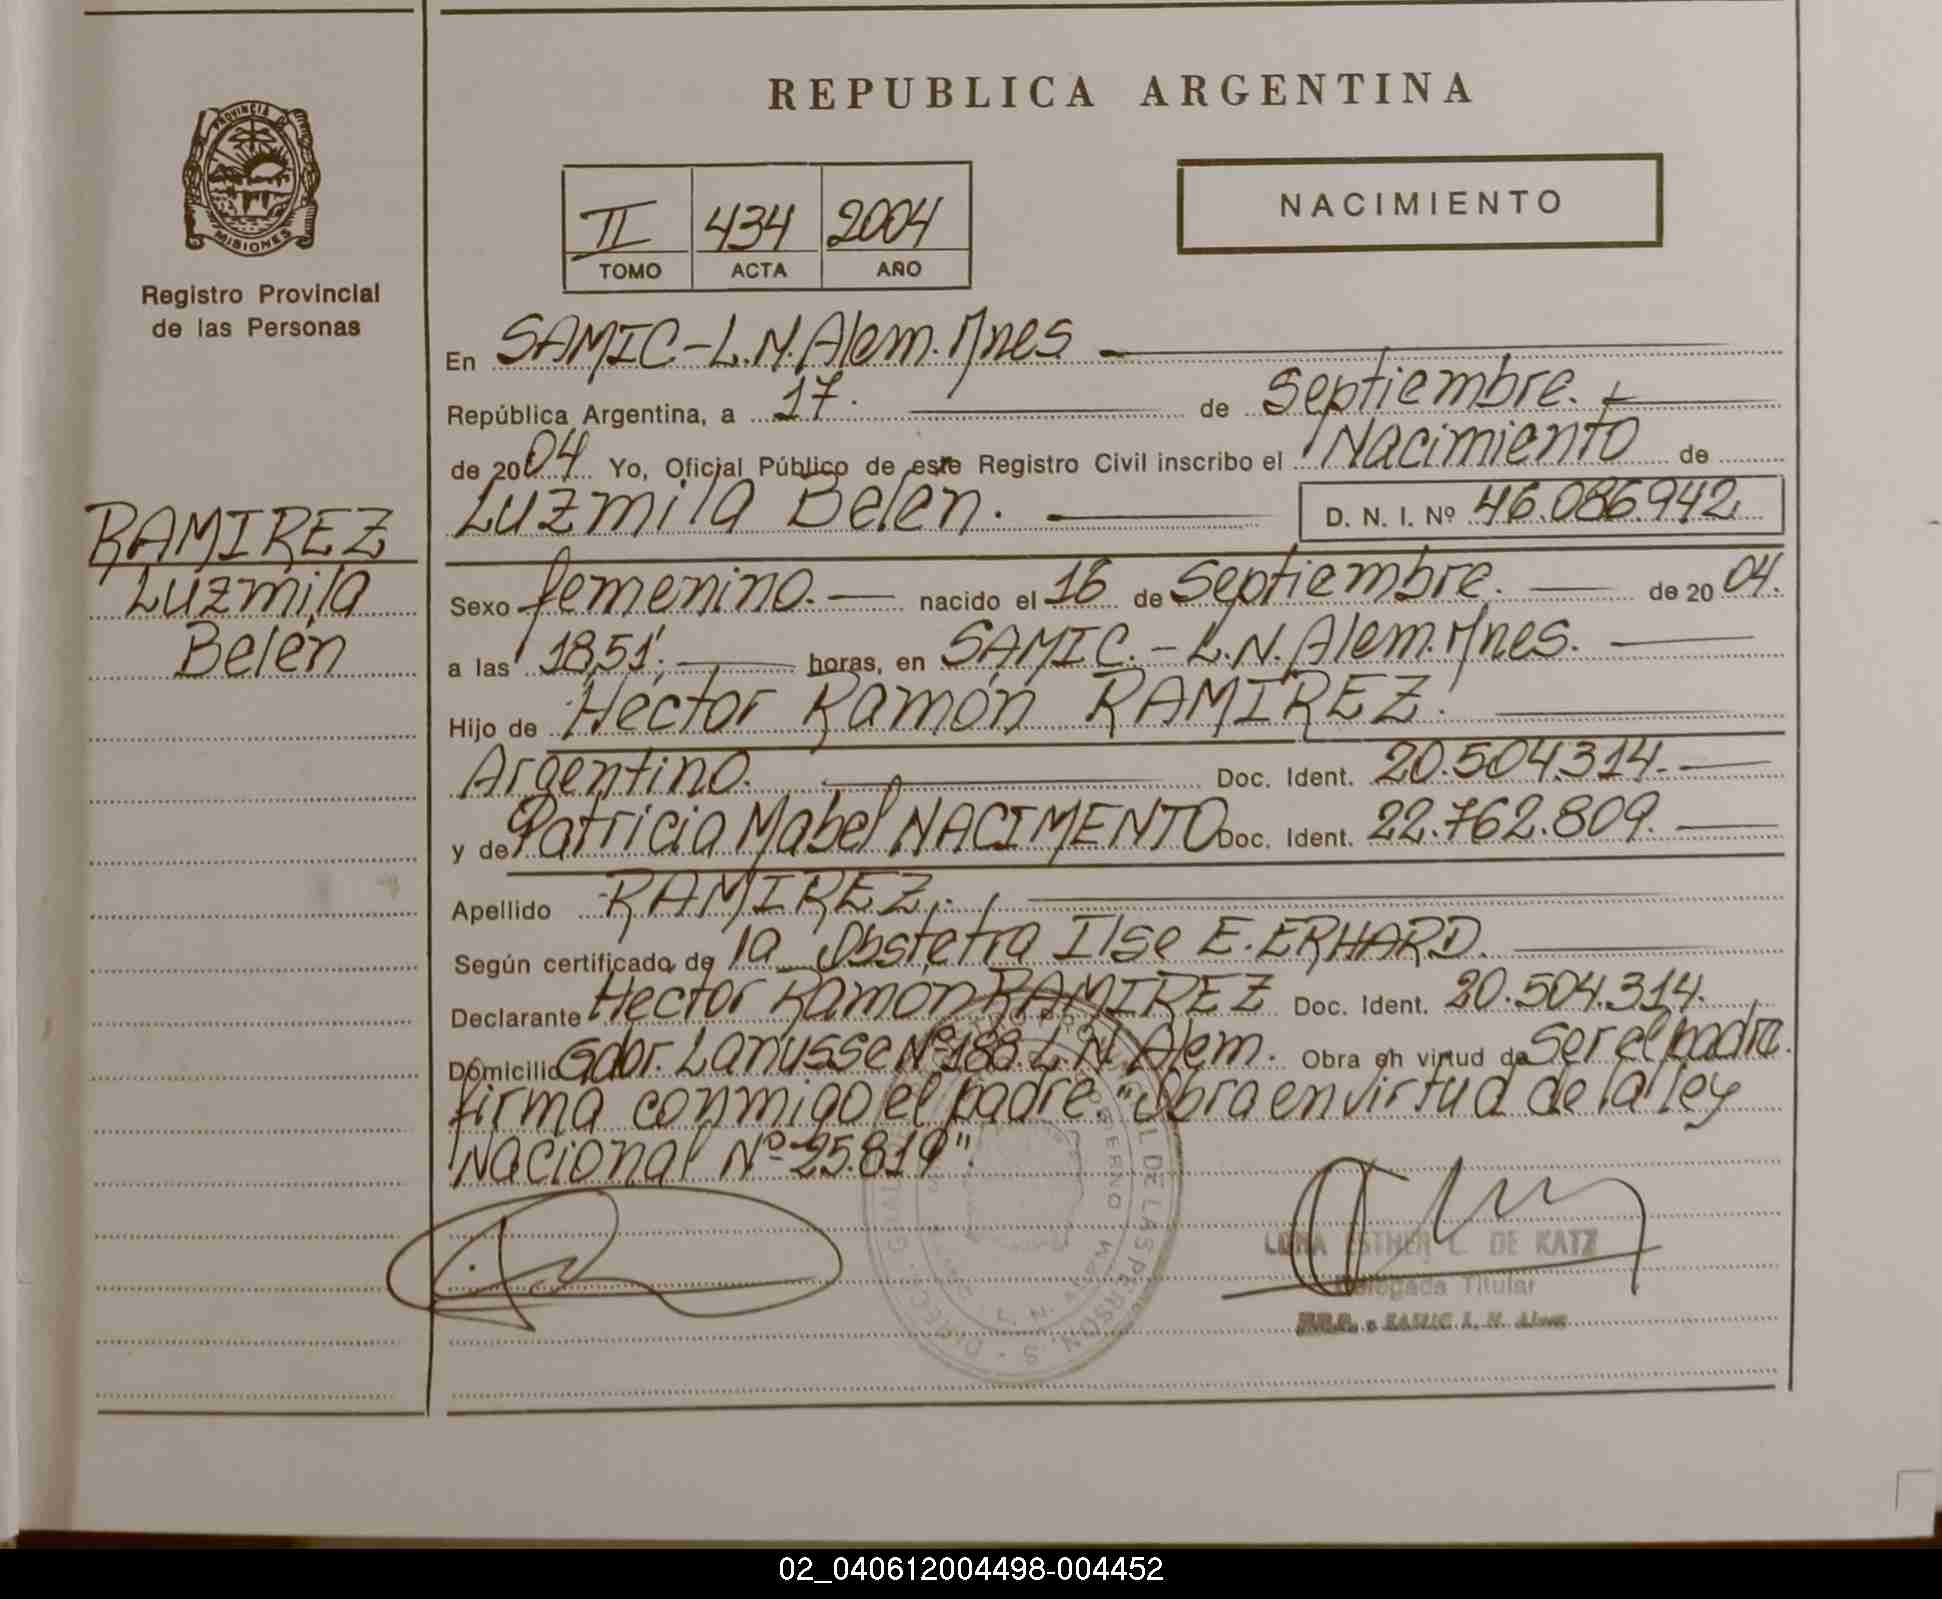 REPUBLICA ARGENTINA
PROVINCIA DE
MISIONES
Registro Provincial
de las Personas
II 434 2004
TOMO ACTA AÑO
NACIMIENTO
RAMIREZ
Luzmila
Belén
En SAMIC-L.N.Alem.Mnes
República Argentina, a 17. de Septiembre.
de 2004 Yo, Oficial Público de este Registro Civil inscribo el Nacimiento de
Luzmila Belén. D. N. I. Nº 46.086.942
Sexo femenino. nacido el 16 de Septiembre. de 2004.
a las 18,51'. horas, en SAMIC.-L.N.Alem.Mnes.
Hijo de Héctor Ramón RAMIREZ.
Argentino. Doc. Ident. 20.504.314.
y de Patricia Mabel NACIMENTO Doc. Ident. 22.762.809.
Apellido RAMIREZ.
Según certificado de la Obstetra Ilse E. ERHARD.
Declarante Hector Ramón RAMIREZ Doc. Ident. 20.504.314.
Domicilio Gdor. Lanusse Nº 188. L.N. Alem. Obra en virtud de Ser el padre.
firma conmigo el padre. "Obra en virtud de la ley
Nacional Nº 25.819".
ESTHER L. DE KATZ
Delegada Titular
SAMIC L. N. Alem
02_040612004498-004452